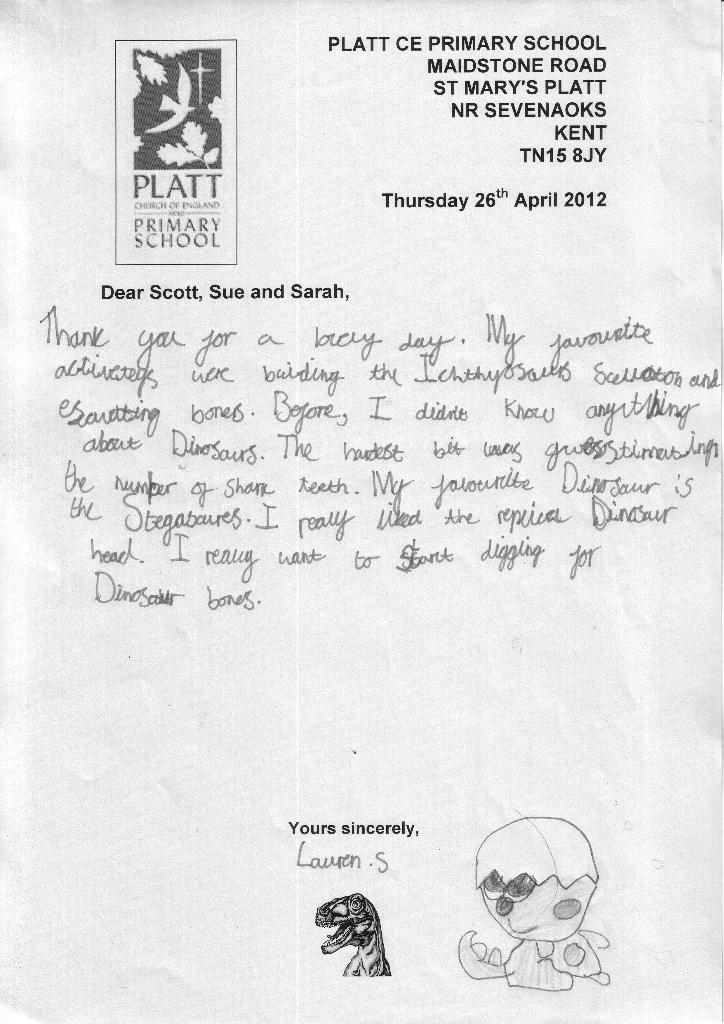 PLATT CE PRIMARY SCHOOL
MAIDSTONE ROAD
ST MARY'S PLATT
NR SEVENAOKS
KENT
TN15 8JY
PLATT
CHURCH OF ENGLAND
PRIMARY
SCHOOL
Thursday 26th April 2012
Dear Scott, Sue and Sarah,
Thank you for a day. My favourite
were building the Ichthyosaurs and
bones. Before, I didnt know anything
about Dinosaurs. The hardest bit was guesstimatings
the number of shark teeth. My favourite Dinosaur is
the Stegasaures. I really liked the replica Dinosaur
head. I really want to start digging for
Dinosaur bones.
Yours sincerely,
Lauren.S